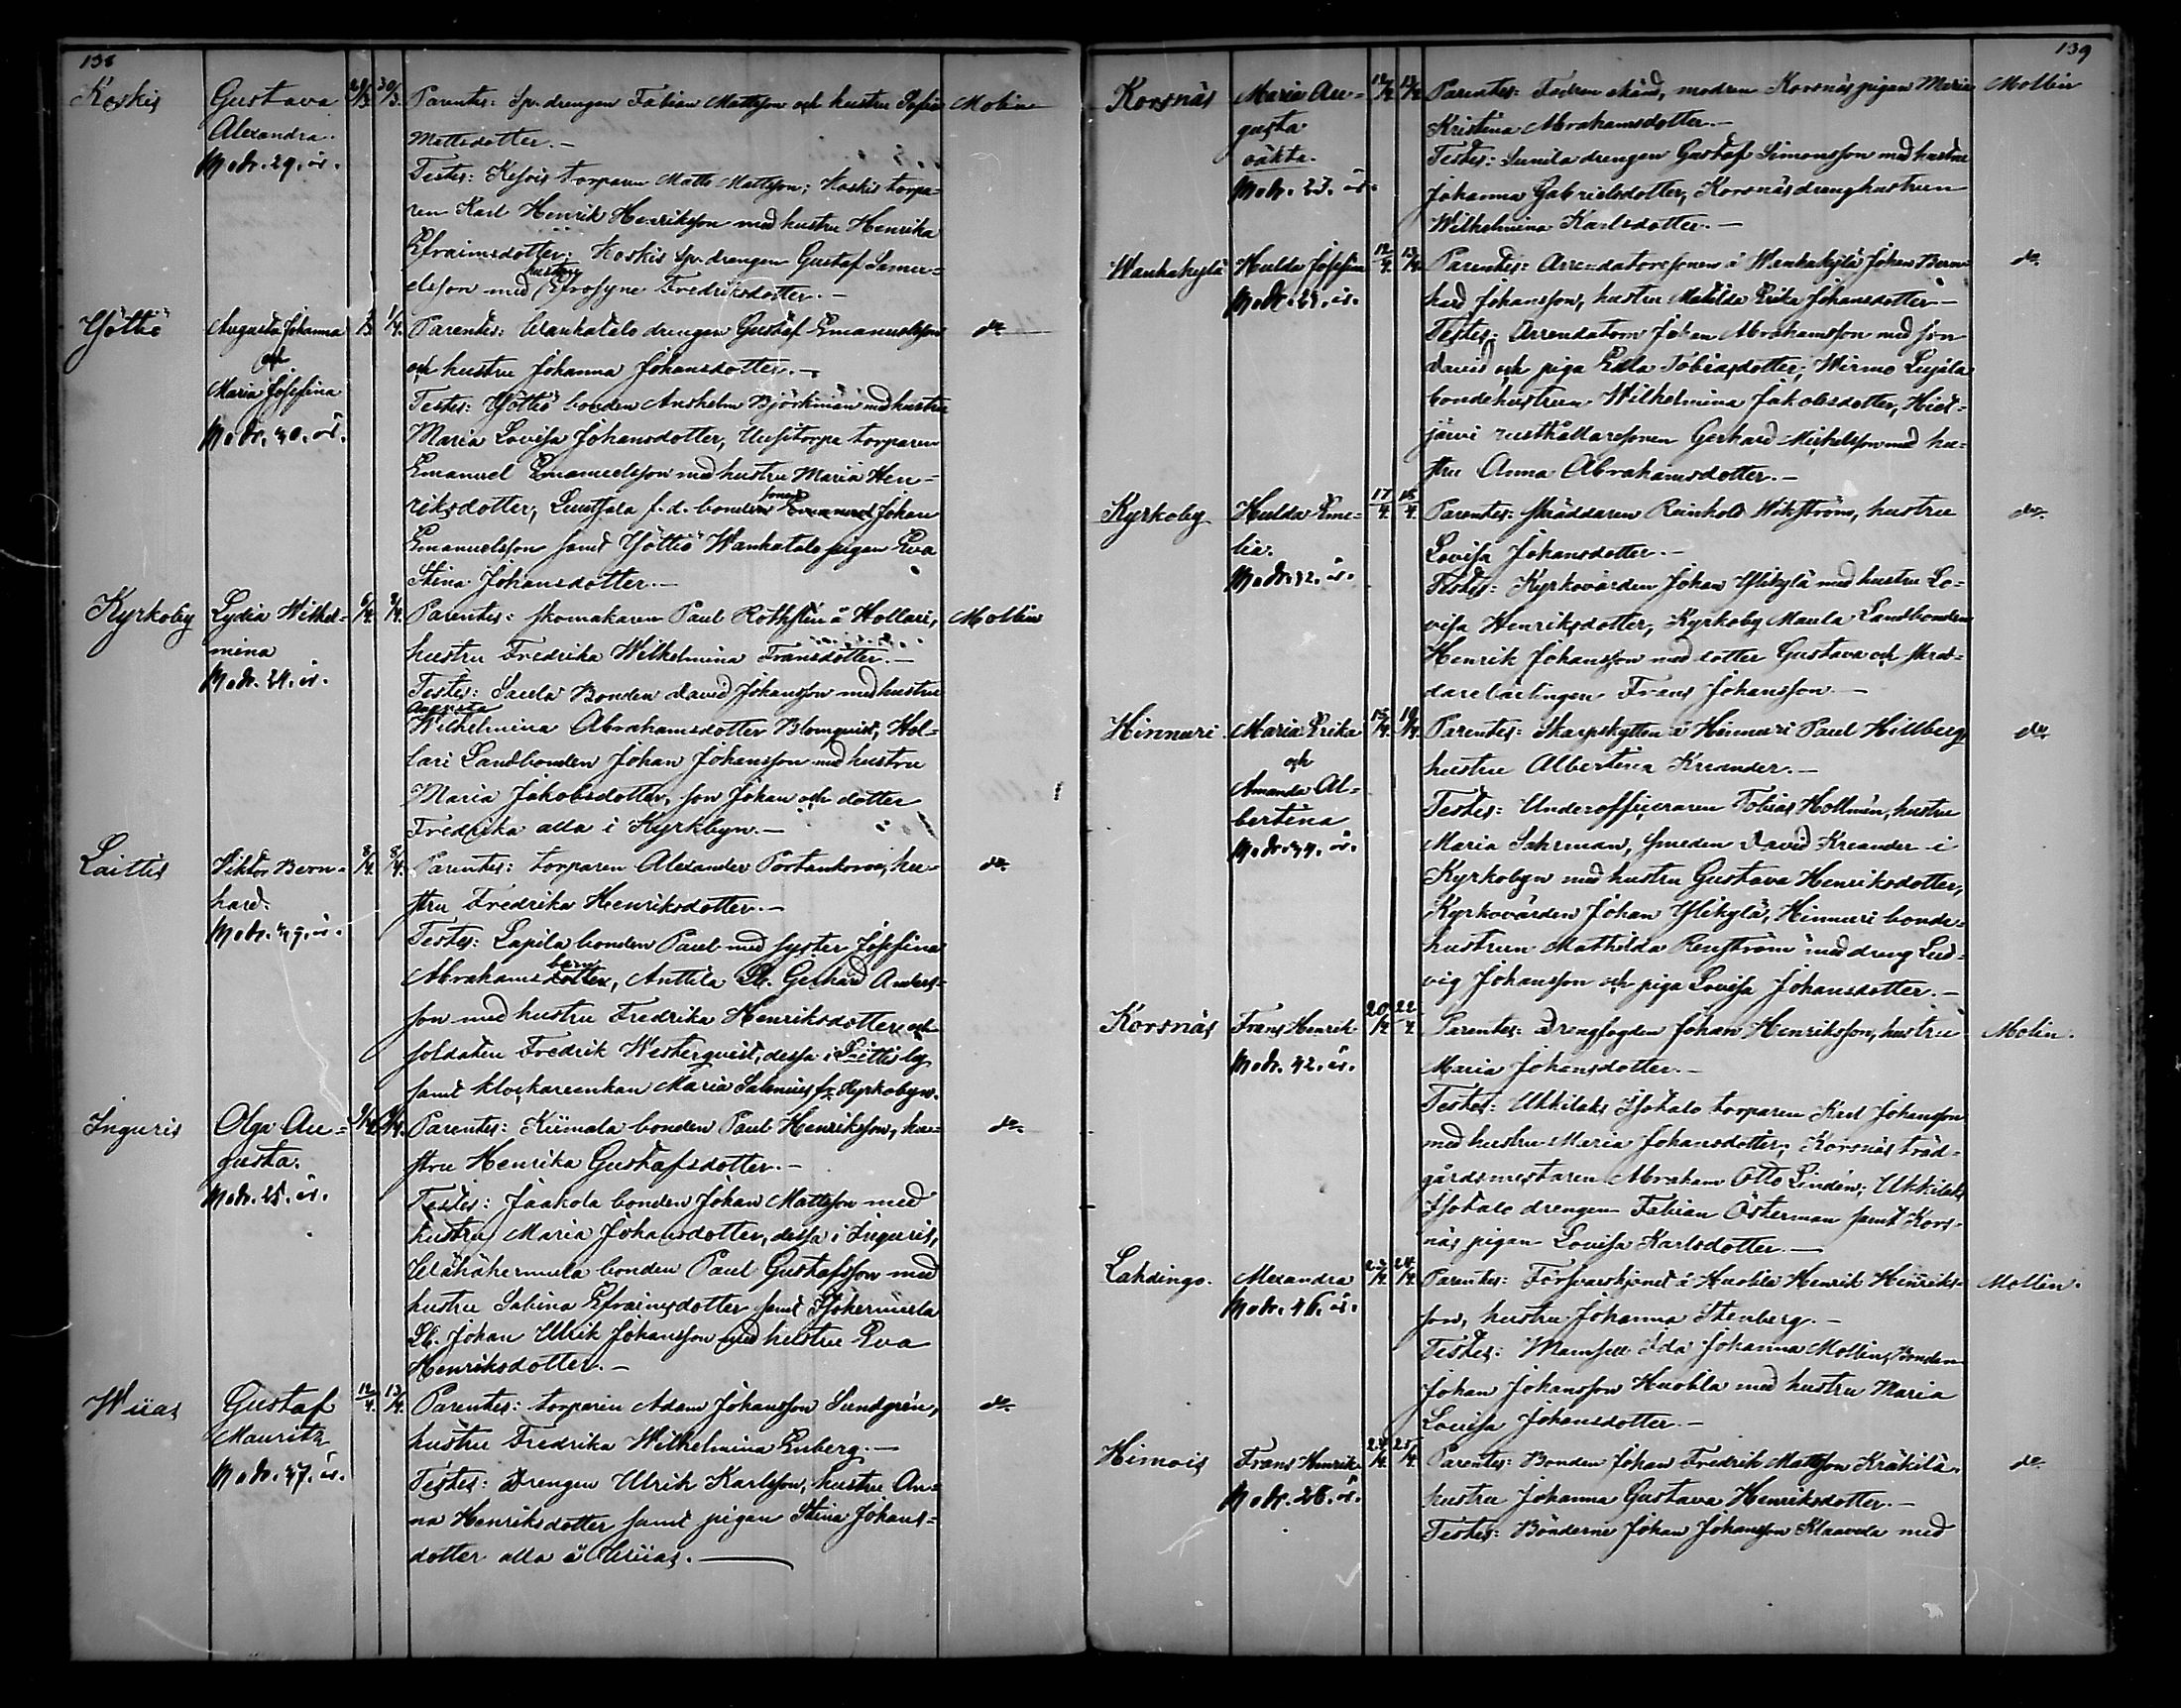 138
Koskis Gustava 28/3 30/3 Parentes: Sp. drengen Fabian Mattsson och hustru Sofia Molin
Alexandra. Mattsdotter.—
Modr. 29. år. Testes: torparen Matts Mattsson; Koskis torpa-
ren Karl Henrik Henriksson med hustru Henrika
Efraimsdotter; Koskis Sp. drengen Gustaf Samu-
elsson med hustru Efrosyne Fredriksdotter.—
Augusta Johanna 1/4. Parentes: drengen Gustaf Emanuelsson do
och och hustru Johanna Johansdotter.—
Maria Josefina Testes: bonden Anshelm Björkman med hustru
Modr. 40. år. Maria Lovisa Johansdotter, torparen
Emanuel Emanuelsson med hustru Maria Hen-
riksdotter, f. d. bonden sonen Johan
Emanuelsson samt pigan Eva
Stina Johansdotter.—
Kyrkoby Lydia Wilhel- 6/4. 8/4. Parentes: skomakaren Paul Rothsten å Hollari, Mollin
mina hustru Fredrika Wilhelmina Fransdotter.—
Modr. 24. år. Testes: Saula Bonden David Johansson med hustru
Augusta
Wilhelmina Abrahamsdotter Blomquist, Hol-
lari Landbonden Johan Johansson med hustru
Maria Jakobsdotter, son Johan och dotter
Fredrika alla i Kyrkbyn.—
Laittis Viktor Bern- 8/4. 8/4. Parentes: torparen Alexander Portankorva, hu- do
hard. stru Fredrika Henriksdotter.—
Modr. år. Testes: Lapila bonden Paul med syster Josefina
Abrahams barn, Anttila Lb. Gerhard Anders-
son med hustru Fredrika Henriksdotter och
soldaten Fredrik Westerqvist, dessa i Laittis by
samt klockareenkan Maria Salenius fr. Kyrkobyn.
Inguris Olga Au- 9/4. 9/4. Parentes: Kiimala bonden Paul Henriksson, hu- do
gusta. stru Henrika Gustafsdotter.—
Modr. 25. år. Testes: Jaakola bonden Johan Mattsson med
hustru Maria Johansdotter, dessa i Inguris,
Wähähermula bonden Paul Gustafsson med
hustru Sabina Efraimsdotter samt Isohermula
Lb. Johan Ulrik Johansson med hustru Eva
Henriksdotter.—
Wiias Gustaf 12/4. 13/4. Parentes: torparen Adam Johansson Sundgrén, do
Mauritz hustru Fredrika Wilhelmina Enberg.—
Modr. 37. år. Testes: Drengen Ulrik Karlsson, hustru An-
na Henriksdotter samt pigan Stina Johans-
dotter alla å Wiias.—
139
Korsnäs Maria Au- 12/4 13/4 Parentes: Fadren okänd, modren Korsnäs pigan Maria Mollin
gusta Kristina Abrahamsdotter.—
oäkta. Testes: Sunila drengen Gustaf Simonsson med hustru
Modr. 23. år. Johanna Gabrielsdotter, Korsnäs drenghustrun
Wilhelmina Karlsdotter.—
Wanhakylä Hulda Josefina 12/4. 13/4. Parentes: Arrendatorssonen å Wanhakylä Johan Bern- do
Modr. år. hard Johansson, hustru Matilda Erika Johansdotter—
Testes: Arrendatorn Johan Abrahamsson med son
David och piga Edla Tobiasdotter; Wirmo
bondehustrun Wilhelmina Jakobsdotter, Hiet-
järvi rusthållaresonen Gerhard Michelsson med hu-
stru Anna Abrahamsdotter.—
Kyrkoby Hulda Emi- 17/4. 15/4. Parentes: skräddaren Reinhold Wikström, hustru do
lia. Lovisa Johansdotter.—
Modr. 32. år. Testes: Kyrkovärden Johan Ylikylä med hustru Lo-
visa Henriksdotter, Kyrkoby Maula Landbonden
Henrik Johansson med dotter Gustava och skräd-
darelärlingen Frans Johansson.—
Hinnuri Maria Erika 15/4. 19/4. Parentes: Skarpskytten å Hinnuri Paul Hillberg do
och hustru Albertina Kreander.—
Amanda Al- Testes: Underofficeraren Tobias Hollmén, hustru
bertina Maria Sahrman, smeden David Kreander i
Modr. år. Kyrkobyn med hustru Gustava Henriksdotter,
Kyrkovärden Johan Ylikylä, Hinnuri bonde-
hustrun Mathilda Renström med dreng Lud-
vig Johansson och piga Lovisa Johansdotter.—
Korsnäs Frans Henrik 20/4 22/4 Parentes: Drengfogden Johan Henriksson, hustru Molin.
Modr. 42. år. Maria Johansdotter.—
Testes: Ukkilaks Isotalo torparen Karl Johansson
med hustru Maria Johansdotter; Korsnäs träd-
gårdsmästaren Abraham Otto Lindén; Ukkilaks
Isotalo drengen Fabian Österman samt Kors-
näs pigan Lovisa Karlsdotter.—
Lahdingo. Alexandra 23/4. 24/4. Parentes: Huobla Henrik Henriks- Mollin.
Modr. 46. år. son, hustru Johanna Stenberg.—
Testes: Mamsell Ida Johanna Mollin, Bonden
Johan Johansson Huobla med hustru Maria
Lovisa Johansdotter.—
Himois Frans Henrik 24/4. 25/4. Parentes: Bonden Johan Fredrik Mattsson Kräkilä. do
Modr. 28. år. hustru Johanna Gustava Henriksdotter.—
Testes: Bönderne Johan Johansson Klaavola med